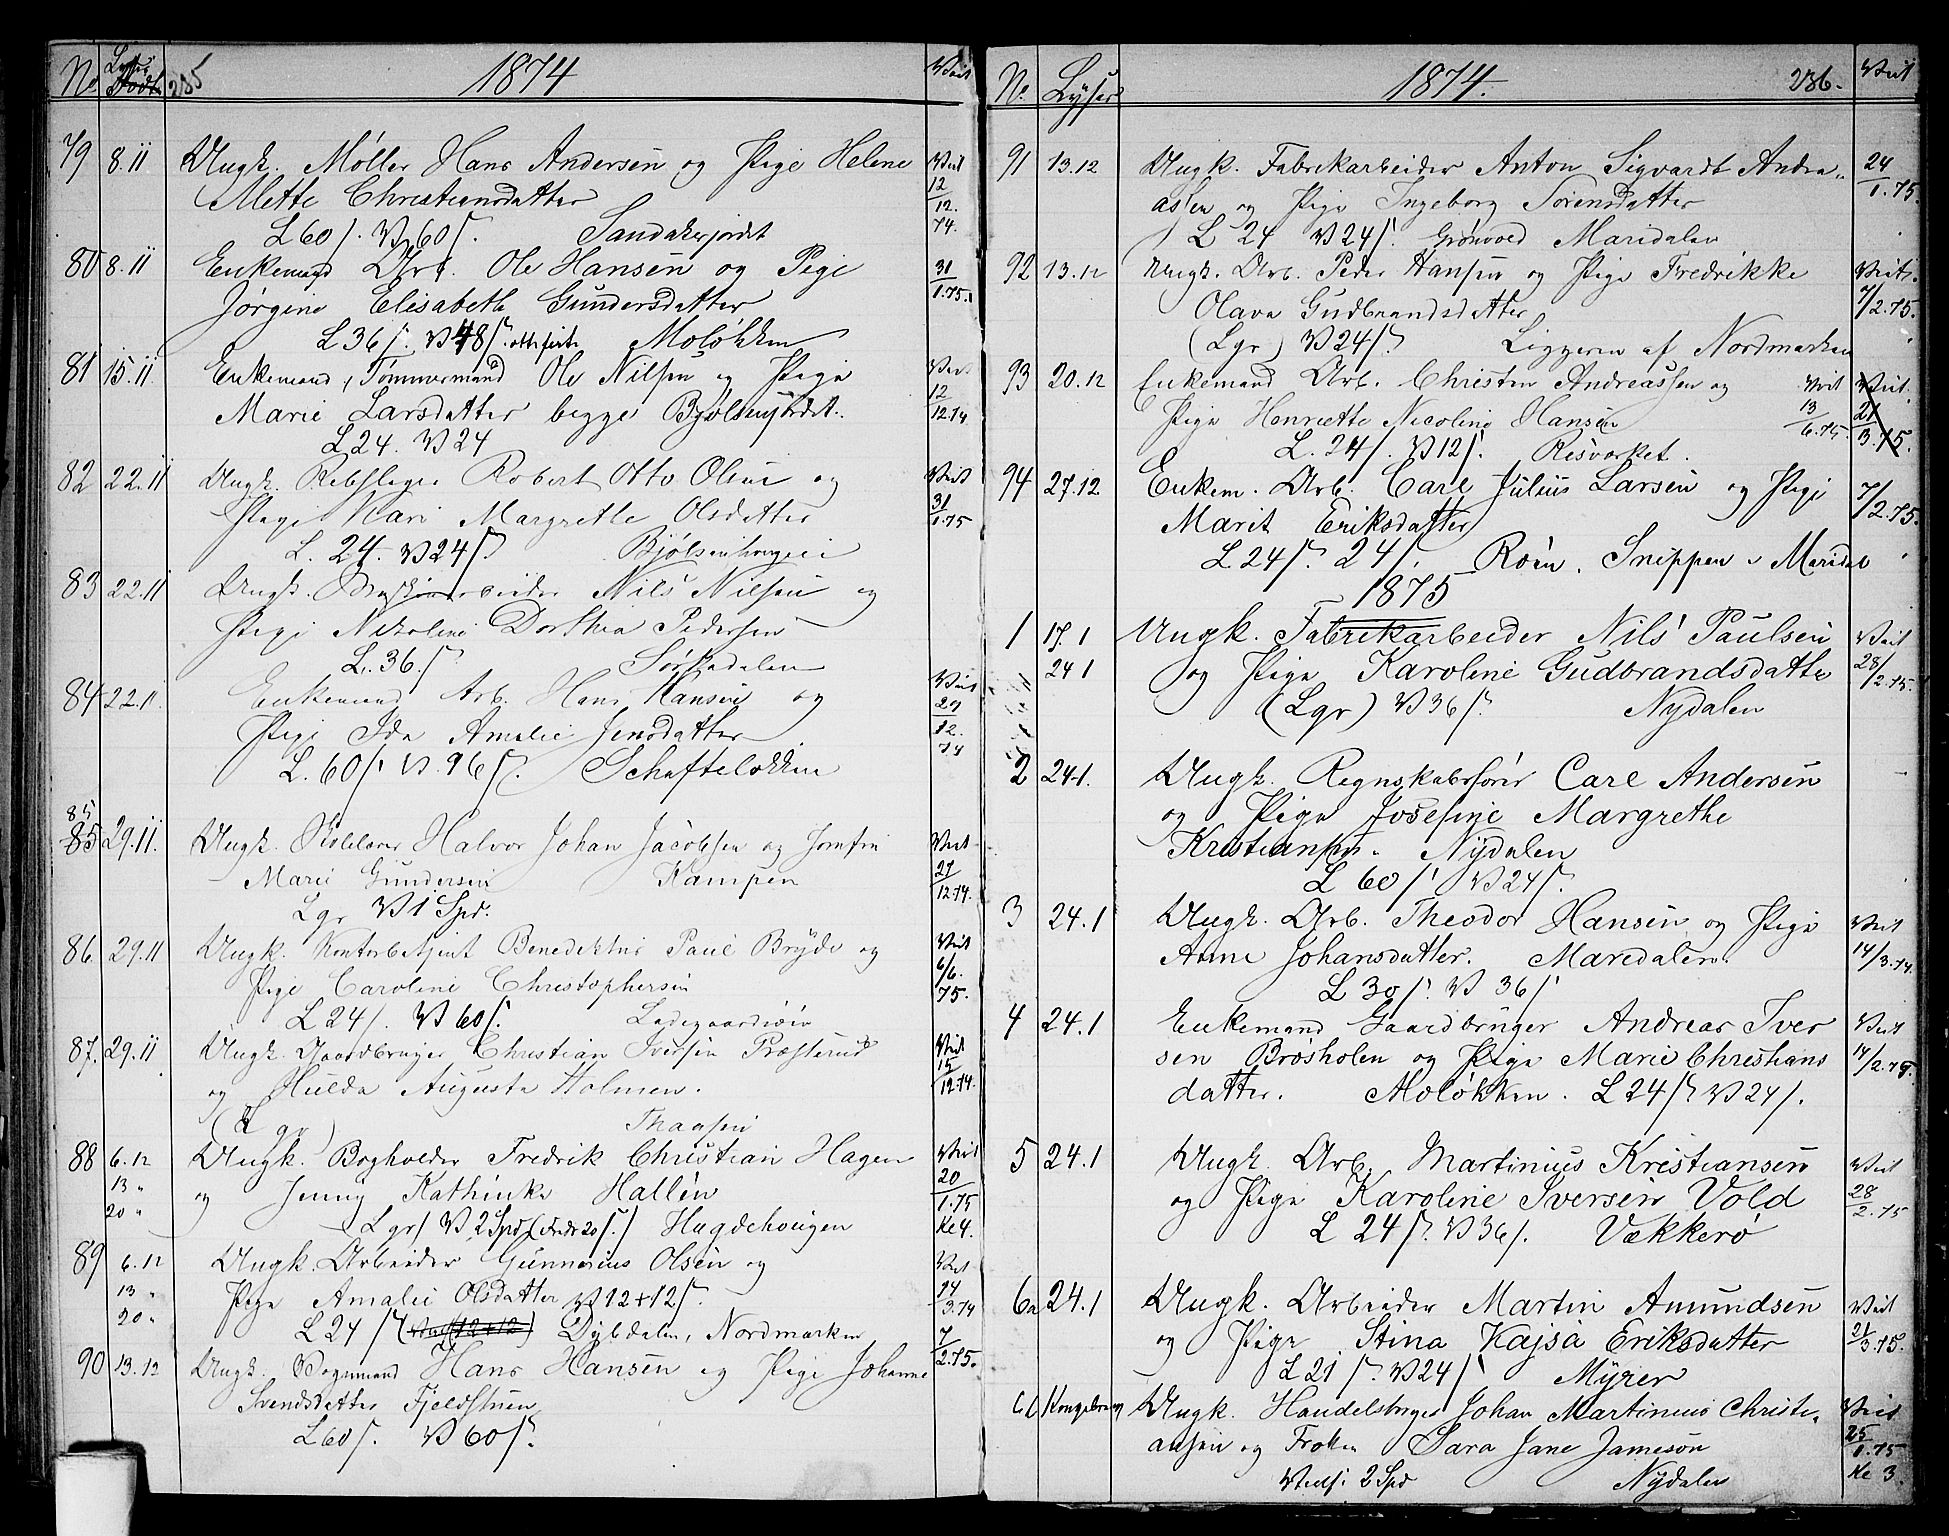 No Lyst Født 235 1874 Viet
79 8.11 Ungk. Møller Hans Andersen og Pige Helene Viet
Mette Christiansdatter 12/12.
L 60 s. V 60 s. Sandakerjordet 74.
80 8.11 Enkemand Arb. Ole Hansen og Pige 31/1.75.
Jørgine Elisabeth Gundersdatter
L 36 s. V 48 s. Moløkken
81 15.11 Enkemand, Tømmermand Ole Nilsen og Pige Viet
Marie Larsdatter begge Bjølsenjordet. 12/12.74
L 24. V 24
82 22.11 Ungk. Rebslager Robert Otto Olsen og Viet
Pige Kari Margrethe Olsdatter 31/1.75
L. 24. V 24 s. Bjølsenhougen
83 22.11 Ungk. Maskinarbeider Nils Nilsen og
Pige Nikoline Dorthea Pedersen
L. 36. s. Sørkedalen
84 22.11. Enkemand Arb. Hans Hansen og Viet
Pige Ida Amalie Jensdatter 27/12.
L. 60 s. V. 96 s. Schafteløkken 74
85
85 29.11. Ungk. Halvor Johan Jacobsen og Jomfru Viet
Marie Gundersen Kampen 27/12.74.
Lgr V 1 Spd.
86. 29.11 Ungk. Kontorbetjent Benediktus Paul Bryde og Viet
Pige Caroline Christophersen 6/6.
L 24 s. V 60 s. Ladegaardsøen 75.
87. 29.11 Ungk. Gaardbruger Christian Iversen Præsterud Viet
og Hulda Augusta Holmen. 15/12.74.
(Lgr) Thaasen
88 6.12 Ungk. Bogholder Fredrik Christian Hagen Viet
13 " og Jenny Kathinka Hallén 20/1.75
20 " Lgr V 2 Spd Hugdehougen Ke 4.
89 6.12 Ungk. Arbeider Gunnerius Olsen og Viet
13 " Pige Amalie Olsdatter V 12+12 s. 14/3.74
20 " L 24 s (12+12) Dybdalen, Nordmarken
90 13.12 Ungk. Hans Hansen og Pige Johanne 7/2.75.
Svendsdatter Fjeldstuen
L 60 s. V 60 s.
No. Lyser 1874. 236. Viet
91 13.12 Ungk. Fabrikarbeider Anton Sigvardt Andre- 24/1.75.
assen og Pige Ingeborg Sørensdatter
L 24 V 24 s. Grønvold Maridalen
92 13.12 Ungk. Arb. Peder Hansen og Pige Fredrikke Viet.
Olava Gudbrandsdatter 7/2.75.
(Lgr) V 24 s. Liggeren af Nordmarken
93 20.12 Enkemand Arb. Christen Andreassen og Viet Viet.
Pige Henriette Nicoline Hansen 13/6.75. 21/3.75.
L. 24 s. V 12 s. Risværket.
94 27.12 Enkem. Arb. Carl Julius Larsen og Pige 7/2.75.
Marit Eriksdatter
L 24 s. 24 s. Roën. Snippen v Maridal
1875
1 17.1 Ungk. Fabrikarbeider Nils Paulsen Viet
24 1 og Pige Karoline Gudbrandsdatter 28/2.75.
(Lgr) V 36 s. Nydalen
2 24.1. Ungk. Regnskabsfører Carl Andersen
og Pige Josefine Margrethe
Kristiansen. Nydalen
L 60 s. V 24 s.
3 24.1 Ungk. Arb. Theodor Hansen og Pige Viet
Anne Johansdatter. Maredalen. 14/3.74.
L 30 s. V 36 s.
4 24.1 Enkemand Gaardbruger Andreas Iver Viet
sen Brøsholen og Pige Marie Christians 14/2.75.
datter. Moløkken. L 24 s. V 24 s.
5 24.1 Ungk. Arb. Martinius Kristiansen Viet
og Pige Karoline Iversen Vold 28/2.75
L 24 s. V 36 s. Vækkerø
6a 24.1 Ungk. Arbeider Martin Amundsen Viet
og Pige Stina Kajsa Eriksdatter 21/3.75.
L 21 s. V 24 s. Myrer
6b Kongebrev Ungk. Handelsborger Johan Martinius Christi- Viet
ansen og Frøken Sara Jane Jameson 25/1.75
Vielse 2 Spd Nydalen Ke 3.